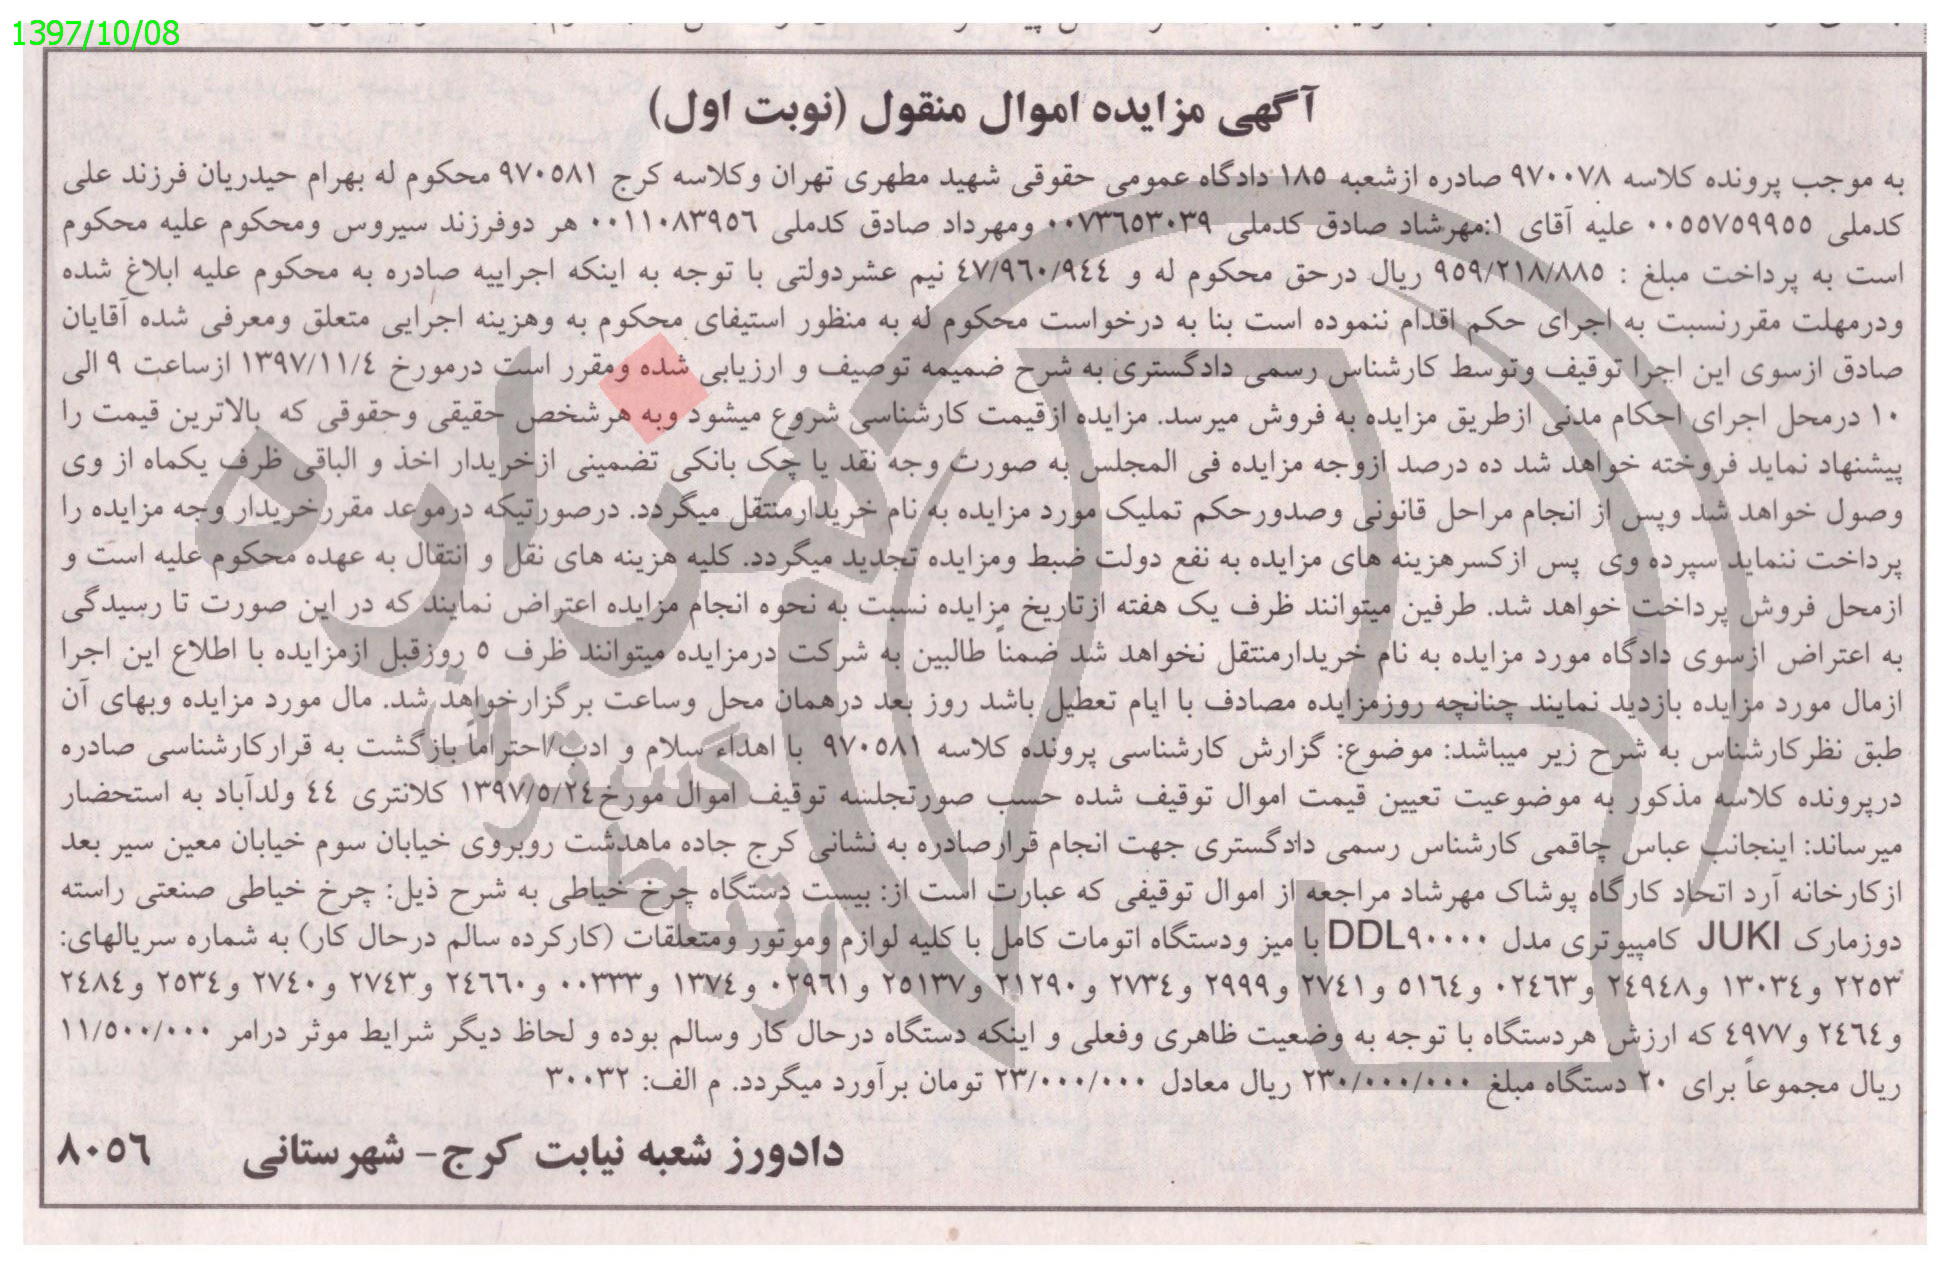 1397/10/08
آگهی مزایده اموال منقول (نوبت اول)
به موجب پرونده کلاسه ۹۷۰۰۷۸ صادره ازشعبه ۱۸۵ دادگاه عمومی حقوقی شهید مطهری تهران وکلاسه کرج ۹۷۰۵۸۱ محکوم له بهرام حیدریان فرزند علی
کدملی ۰۰۵۵۷۵۹۹۵۵ علیه آقای ۱:مهرشاد صادق کدملی ۰۰۷۳۶۵۳۰۳۹ ومهرداد صادق کدملی ۰۰۱۱۰۸۳۹۵۶ هر دوفرزند سیروس ومحکوم علیه محکوم
است به پرداخت مبلغ : ۹۵۹/۲۱۸/۸۸۵ ریال درحق محکوم له و ۴۷/۹۶۰/۹۴۴ نیم عشردولتی با توجه به اینکه اجراییه صادره به محکوم علیه ابلاغ شده
ودرمهلت مقررنسبت به اجرای حکم اقدام ننموده است بنا به درخواست محکوم له به منظور استیفای محکوم به وهزینه اجرایی متعلق ومعرفی شده آقایان
صادق ازسوی این اجرا توقیف وتوسط کارشناس رسمی دادگستری به شرح ضمیمه توصیف و ارزیابی شده ومقرر است درمورخ ۱۳۹۷/۱۱/۴ ازساعت ۹ الی
۱۰ درمحل اجرای احکام مدنی ازطریق مزایده به فروش میرسد. مزایده ازقیمت کارشناسی شروع میشود وبه هرشخص حقیقی وحقوقی که بالاترین قیمت را
پیشنهاد نماید فروخته خواهد شد ده درصد ازوجه مزایده فی المجلس به صورت وجه نقد یا چک بانکی تضمینی ازخریدار اخذ و الباقی ظرف یکماه از وی
وصول خواهد شد وپس از انجام مراحل قانونی وصدورحکم تملیک مورد مزایده به نام خریدارمنتقل میگردد. درصورتیکه درموعد مقررخریدار وجه مزایده را
پرداخت ننماید سپرده وی پس ازکسرهزینه های مزایده به نفع دولت ضبط ومزایده تجدید میگردد. کلیه هزینه های نقل و انتقال به عهده محکوم علیه است و
ازمحل فروش پرداخت خواهد شد. طرفین میتوانند ظرف یک هفته ازتاریخ مزایده نسبت به نحوه انجام مزایده اعتراض نمایند که در این صورت تا رسیدگی
به اعتراض ازسوی دادگاه مورد مزایده به نام خریدارمنتقل نخواهد شد ضمناً طالبین به شرکت درمزایده میتوانند ظرف ۵ روزقبل ازمزایده با اطلاع این اجرا
ازمال مورد مزایده بازدید نمایند چنانچه روزمزایده مصادف با ایام تعطیل باشد روز بعد درهمان محل وساعت برگزارخواهد شد. مال مورد مزایده وبهای آن
طبق نظرکارشناس به شرح زیر میباشد: موضوع: گزارش کارشناسی پرونده کلاسه ۹۷۰۵۸۱ با اهداء سلام و ادب/احتراماً بازگشت به قرارکارشناسی صادره
درپرونده کلاسه مذکور به موضوعیت تعیین قیمت اموال توقیف شده حسب صورتجلسه توقیف اموال مورخ۱۳۹۷/۵/۲۴ کلانتری ۴۴ ولدآباد به استحضار
میرساند: اینجانب عباس چاقمی کارشناس رسمی دادگستری جهت انجام قرارصادره به نشانی کرج جاده ماهدشت روبروی خیابان سوم خیابان معین سیر بعد
ازکارخانه آرد اتحاد کارگاه پوشاک مهرشاد مراجعه از اموال توقیفی که عبارت است از: بیست دستگاه چرخ خیاطی به شرح ذیل: چرخ خیاطی صنعتی راسته
دوزمارک JUKI کامپیوتری مدل DDL۹۰۰۰۰ با میز ودستگاه اتومات کامل با کلیه لوازم وموتور ومتعلقات (کارکرده سالم درحال کار) به شماره سریالهای:
۲۲۵۳ و ۱۳۰۳۴ و ۲۴۹۴۸ و ۰۲۴۶۳ و ۵۱۶۴ و ۲۷۴۱ و ۲۹۹۹ و ۲۷۳۴ و ۲۱۲۹۰ و ۲۵۱۳۷ و ۰۲۹۶۱ و ۱۳۷۴ و ۰۰۳۳۳ و ۲۴۶۶۰ و ۲۷۴۳ و ۲۷۴۰ و ۲۵۳۴ و ۲۴۸۴
و ۲۴۶۴ و ۴۹۷۷ که ارزش هردستگاه با توجه به وضعیت ظاهری وفعلی و اینکه دستگاه درحال کار وسالم بوده و لحاظ دیگر شرایط موثر درامر ۱۱/۵۰۰/۰۰۰
ریال مجموعاً برای ۲۰ دستگاه مبلغ ۲۳۰/۰۰۰/۰۰۰ ریال معادل ۲۳/۰۰۰/۰۰۰ تومان برآورد میگردد. م الف: ۳۰۰۳۲
دادورز شعبه نیابت کرج- شهرستانی ۸۰۵۶